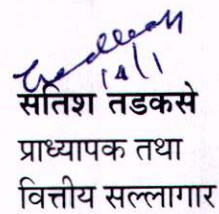 14/1
सतिश तडकसे
प्राध्यापक तथा
वित्तीय सल्लागार